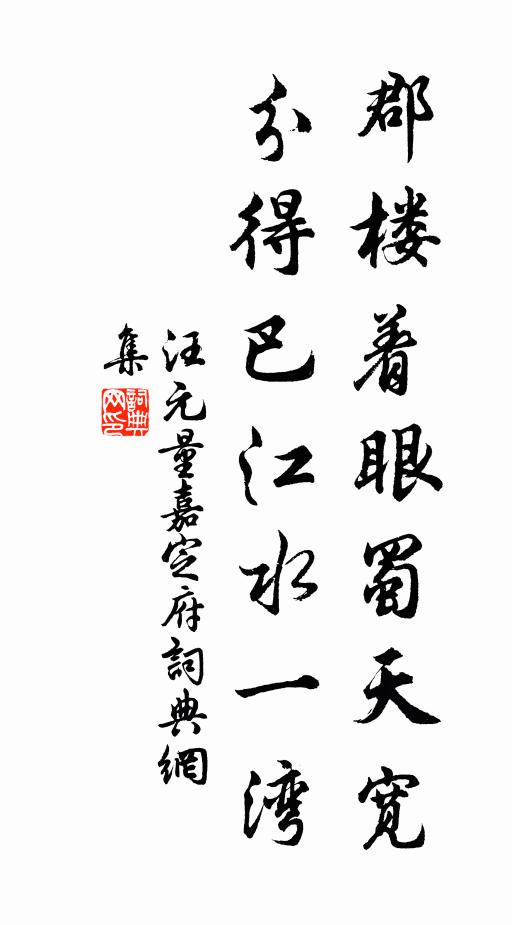 郡楼着眼蜀天宽
分得巴江水一湾
汪元量嘉定府詞典網
集
詞典网印